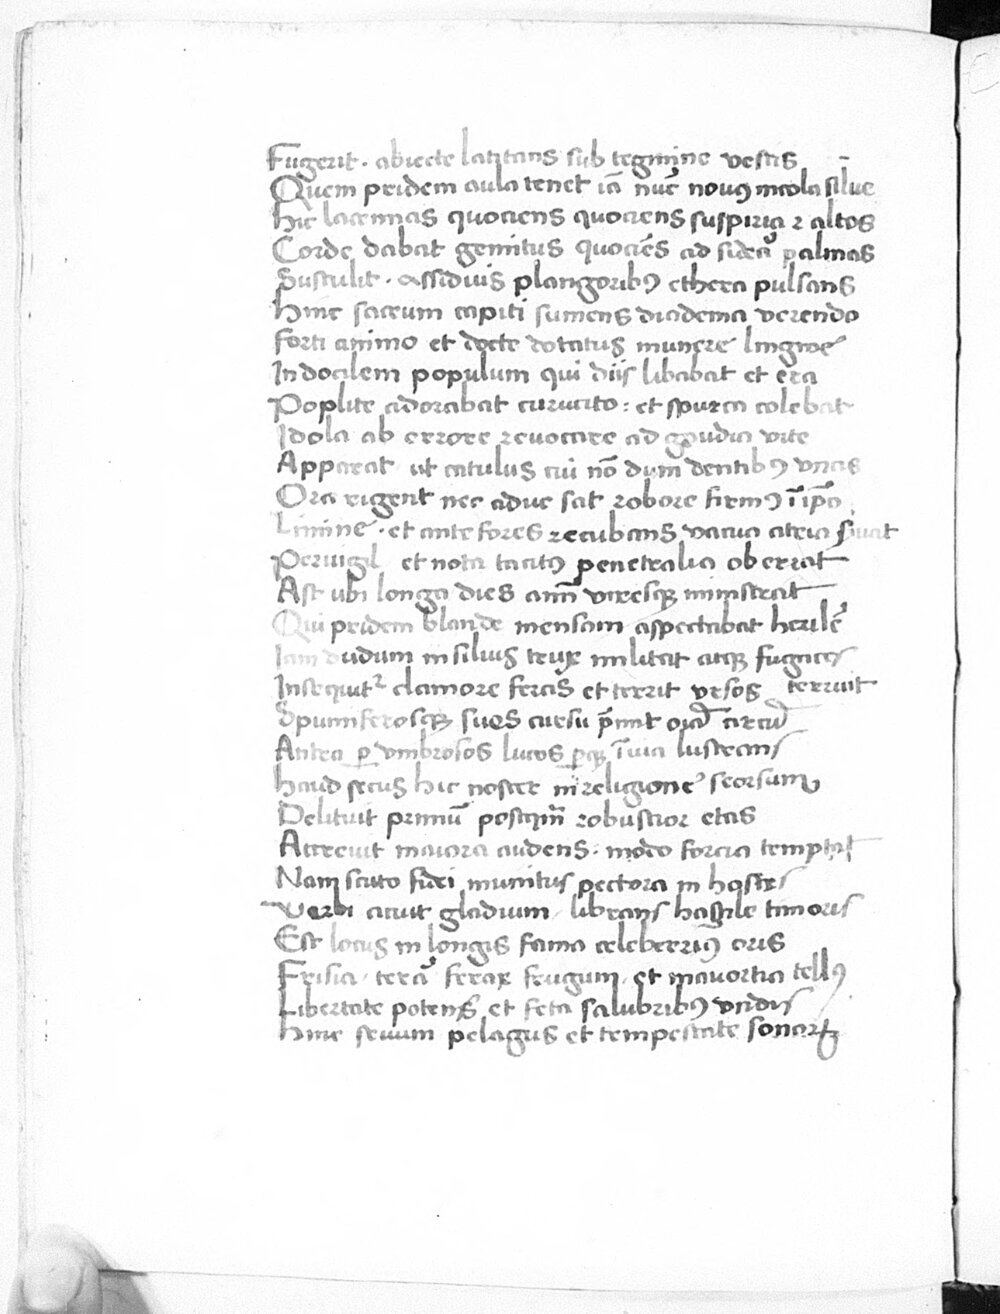 Fugerit . abiecte latitans sub tegmine vestis
Quem pridem aula tenet iā nūc novꝰ incola silve
Hic lacrimas quociens quociens suspiria ⁊ altos
Corde dabat gemitus quociēs ad sidera palmas
Sustulit . assiduis plangoribꝰ ethera pulsans
Hinc sacrum capiti sumens diadema verendo
Forti animo et docte dotatus munere lingwe
Indocilem populum qui diis libabat et era
Poplite adorabat curvato : et spurca colebat
Idola ab errore revocare ad gaudia vite
Apparat ut catulus cui nō dum dentibꝰ uncis
Ora rigent nec aduc sat robore firmꝰ ī ip̄o
Limine . et ante fores recubans vacua atria
Pervigil et nota tacitꝰ penetralia oberrat
Ast ubi longa dies viresqꝫ ministrat
Qui pridem blande mensam aspectabat herilē
Iam dudum in silvis trux militat atqꝫ fugaces
Insequitr clamore feras et territ vrsos terruit
Spumiferosqꝫ sues cursu p̄mit
Antra ꝑ vmbrosos lucos ꝑqꝫ īvia lustrans
Haud secus hic noster in religione seorsum
Delituit primū postqm̄ robustior etas
Accrevit maiora audens . modo forcia temptat
Nam scuto fidei munitus pectora in hostes
Verbi acuit gladium librans hastile timoris
Est locus in longis fama celeberrimꝰ oris
Frisia . terra ferax frugum . et mavortia tellꝰ
Libertate potens et feta salubribꝰ vndis
Hinc sevum pelagus et tempestate sonorꝫ